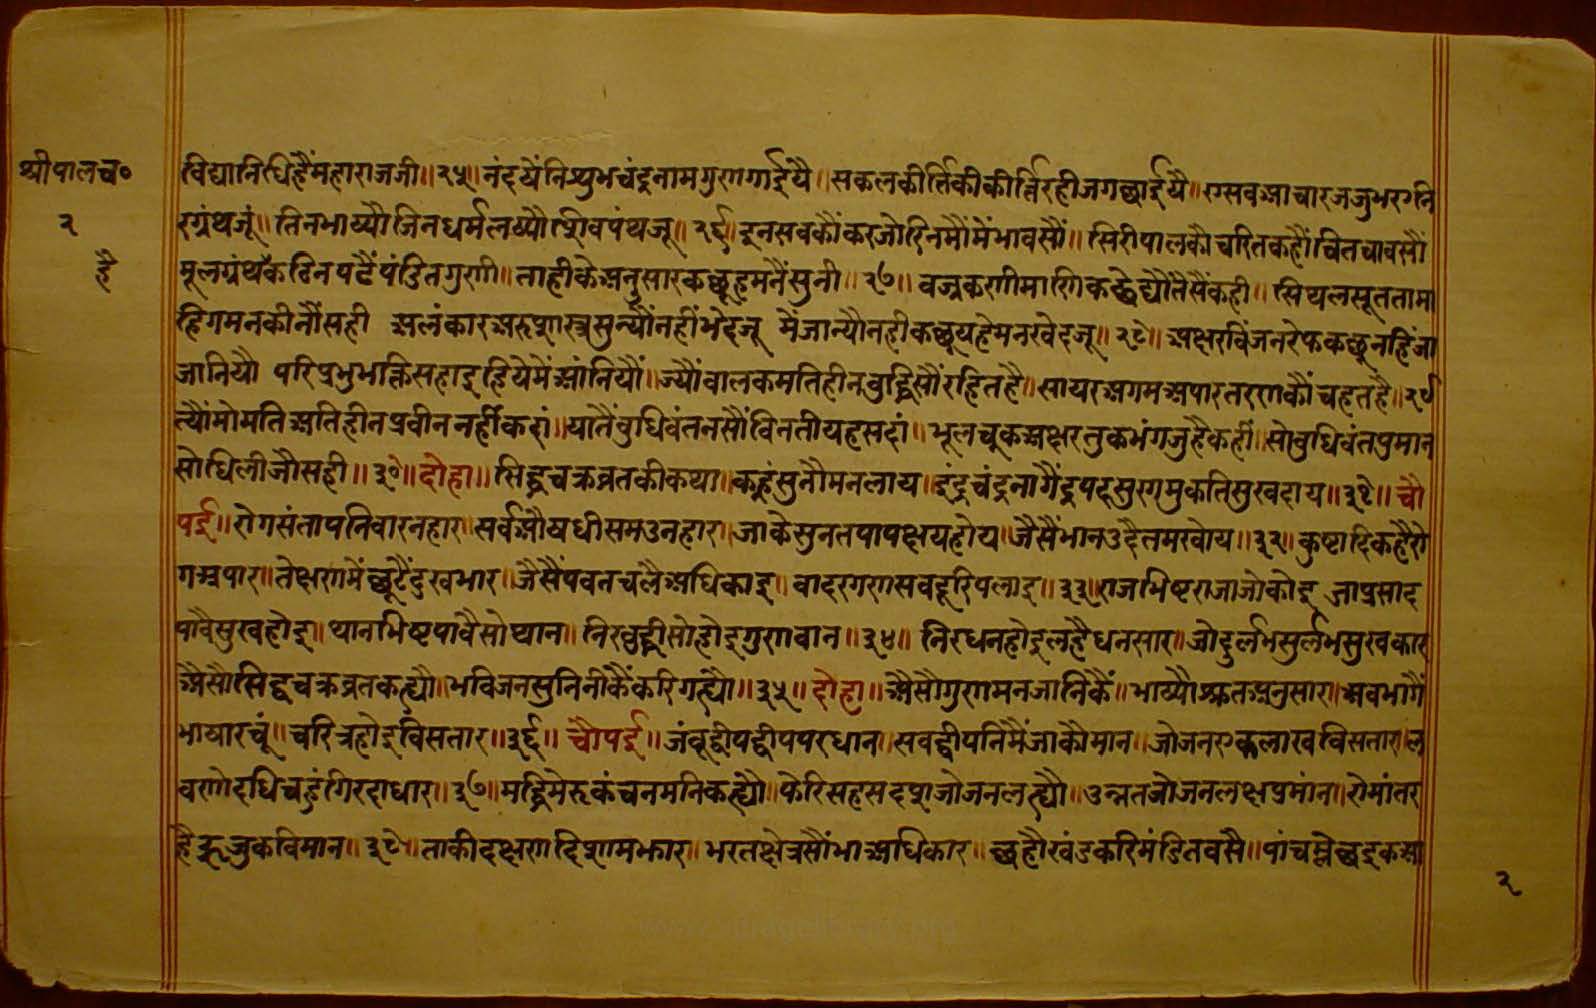 श्रीपालच॰
२
है
विद्यानिधिहैंमहाराजजी॥२५॥नंदयेंनिश्शुभचंद्रनामगुणगाईयै॥सकलकीर्त्तिकीकीर्त्तिरहीजगछाईयै॥एसबआचारजजुभएनि
रग्रंथजूं॥तिनभाष्यौजिनधर्मलष्यौशिवपंथजू॥२६॥इनसबकौंकरजोरिनमौंमेंभावसौं॥सिरीपालकौचरितकहौंचितचावसौं
मूलग्रंथकठिनपढैंपंडितगुणी॥ताहीकेअनुसारकछूहमनैंसुनी॥२७॥वज्रकरणीमाणिकछेद्यौतैसैंकही॥सिथलसूततामा
हिगमनकीनौंसही अलंकारअरुशास्त्रसुन्यौंनहींभेदजू मेंजान्यौनहीकछूयहेमनखेदजू॥२८॥अक्षरविंजनरेफकछूनहिंजा
जानियौ परिप्रभुभक्तिसहाइहियेमेंआंनियौं॥ज्यौंबालकमतिहीनबुद्धिसौंरहितहै॥सायरअगमअपारतरणकौंचहतहै॥२९
त्यौंमोमतिअतिहीनप्रवीननहींकहां॥यातैंबुधिवंतनसौंविनतीयहसदां॥भूलचूकअक्षरतुकभंगजुहैकहीं॥सोबुधिवंतपुमान
सोधिलीजौसही॥३०॥दोहा॥सिद्धचक्रव्रतकीकथा॥कहुंसुनौमनलाय॥इंद्रचंद्रनागेंद्रपदसुरगमुकतिसुखदाय॥३१॥चौ
पई॥रोगसंतापनिवारनहार॥सर्वऔषधीसमउनहार॥जाकेसुनतपापक्षयहोय॥जैसैंभानउदैतमखोय॥३२॥कुष्टादिकहैरो
गअपार॥तेक्षणमेंछूटैंदुखभार॥जैसैंपवनचलैअधिकाइ॥वादरगणसबदूरिपलाइ॥३३॥राजभिष्टराजाजोकोइ जाप्रसाद
पावैसुखहोइ॥थानभिष्टपावैसोथान॥निरबुद्धीसोहोइगुणवान॥३४॥निरधनहोइलहैधनसार॥ओदुर्लभसुर्लभसुखकार
अैसौसिद्धचक्रव्रतकह्यौ॥भविजनसुनिनीकैंकरिगह्यौ॥३५॥दोहा॥अैसौगुणमनजानिकैं॥भाष्यौश्रुतअनुसार॥अबभागैं
भाषारचूं॥चरित्रहोइविसतार॥३६॥चौपई॥जंबूद्वीपद्वीपपरधान॥सबद्वीपनिमैंजाकौमान॥जोजनएकलाखविसतार॥ल
वणोदधिचहुंगिरदाधार॥३७॥मद्धिमेरूकंचनमनिकह्यौ॥फेरिसहसदशजोजनलह्यौ॥उन्नतजोजनलक्षप्रमांन॥रोमांतर
हैरुजुकविमान॥३८॥ताकीदक्षणदिशामझार॥भरतक्षेत्रसौंभाअधिकार॥छहौखंडकरिमंडितबसै॥पांचम्लेछइकआ
२